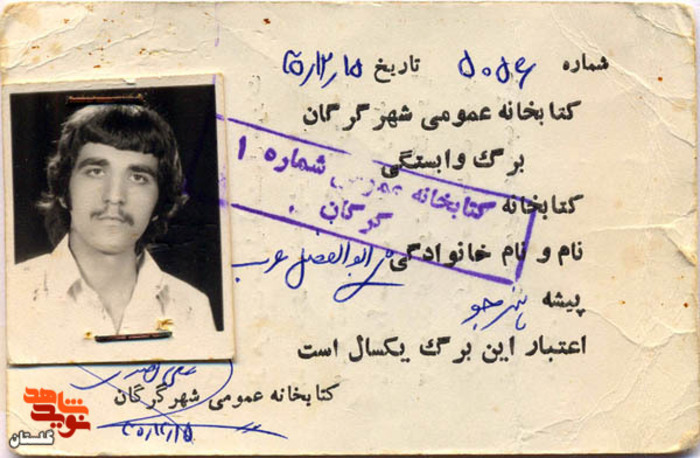 شماره ۵۰۵۶ تاریخ ۲۵/۱۲/۱۵
کتابخانه عمومی شهر گرگان
برگ وابستگی
کتابخانه
نام و نام خانوادگی ابوالفضل عرب
پیشه هنرجو
اعتبار این برگ یکسال است
کتابخانه عمومی شهر گرگان
کتابخانه عمومی شماره ۱
گرگان
نوید شاهد
گلستان